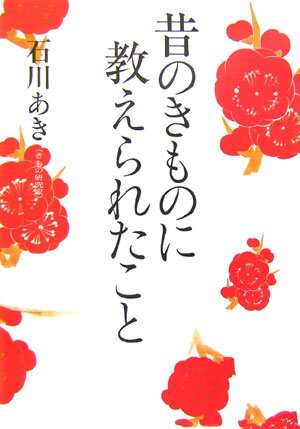 昔のきものに
教えられたこと
石川あき
（きもの研究家）